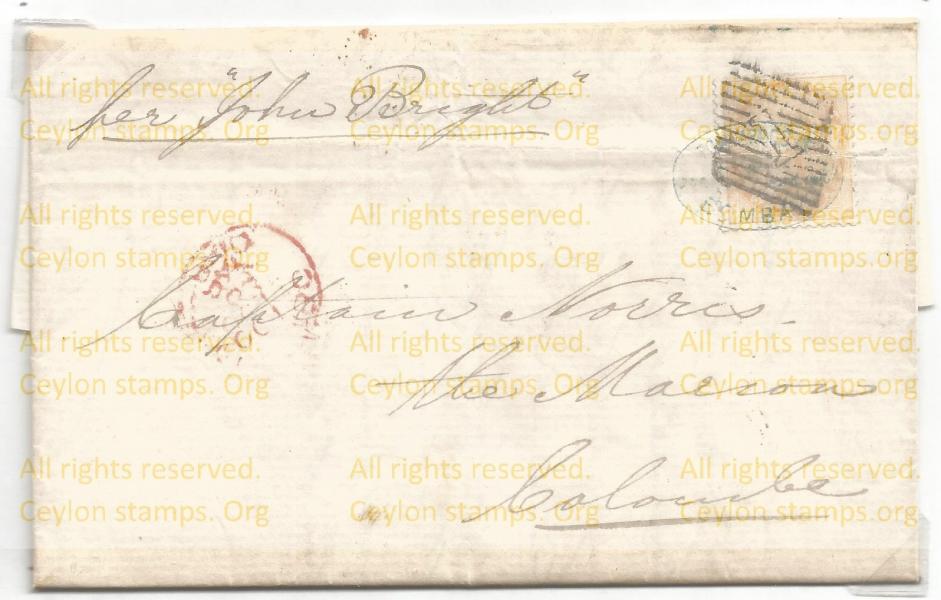 per "John Bright"
Captain Norris.
the Macron
Colombo
BOMBAY
All rights reserved. All rights reserved. All rights reserved.
Ceylon stamps. Org Ceylon stamps. Org Ceylon stamps. Org
All rights reserved. All rights reserved. All rights reserved.
Ceylon stamps. Org Ceylon stamps. Org Ceylon stamps. Org
All rights reserved. All rights reserved. All rights reserved.
Ceylon stamps. Org Ceylon stamps. Org Ceylon stamps. Org
All rights reserved. All rights reserved. All rights reserved.
Ceylon stamps. Org Ceylon stamps. Org Ceylon stamps. Org